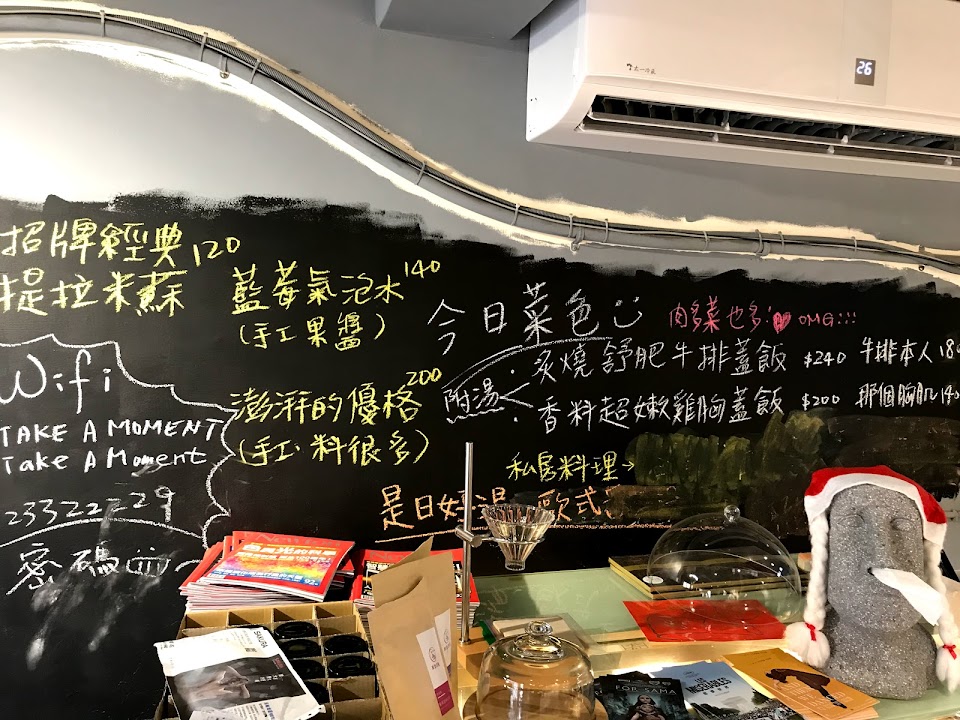 招牌經典 120
提拉米蘇
藍莓氣泡水 140
(手工果醬)
澎湃的優格 200
(手工·料很多)
Wifi
TAKE A MOMENT
Take A Moment
23322229
密碼
今日菜色
肉多菜也多! OMG!!!
附湯
炙燒舒肥牛排蓋飯 $240 牛排本人 180
香料超嫩雞胸蓋飯 $200 那個胸肌 140
私房料理→
是日好湯
歐式
26
SAKURA
FOR SAMA
LOS
MISERABLES